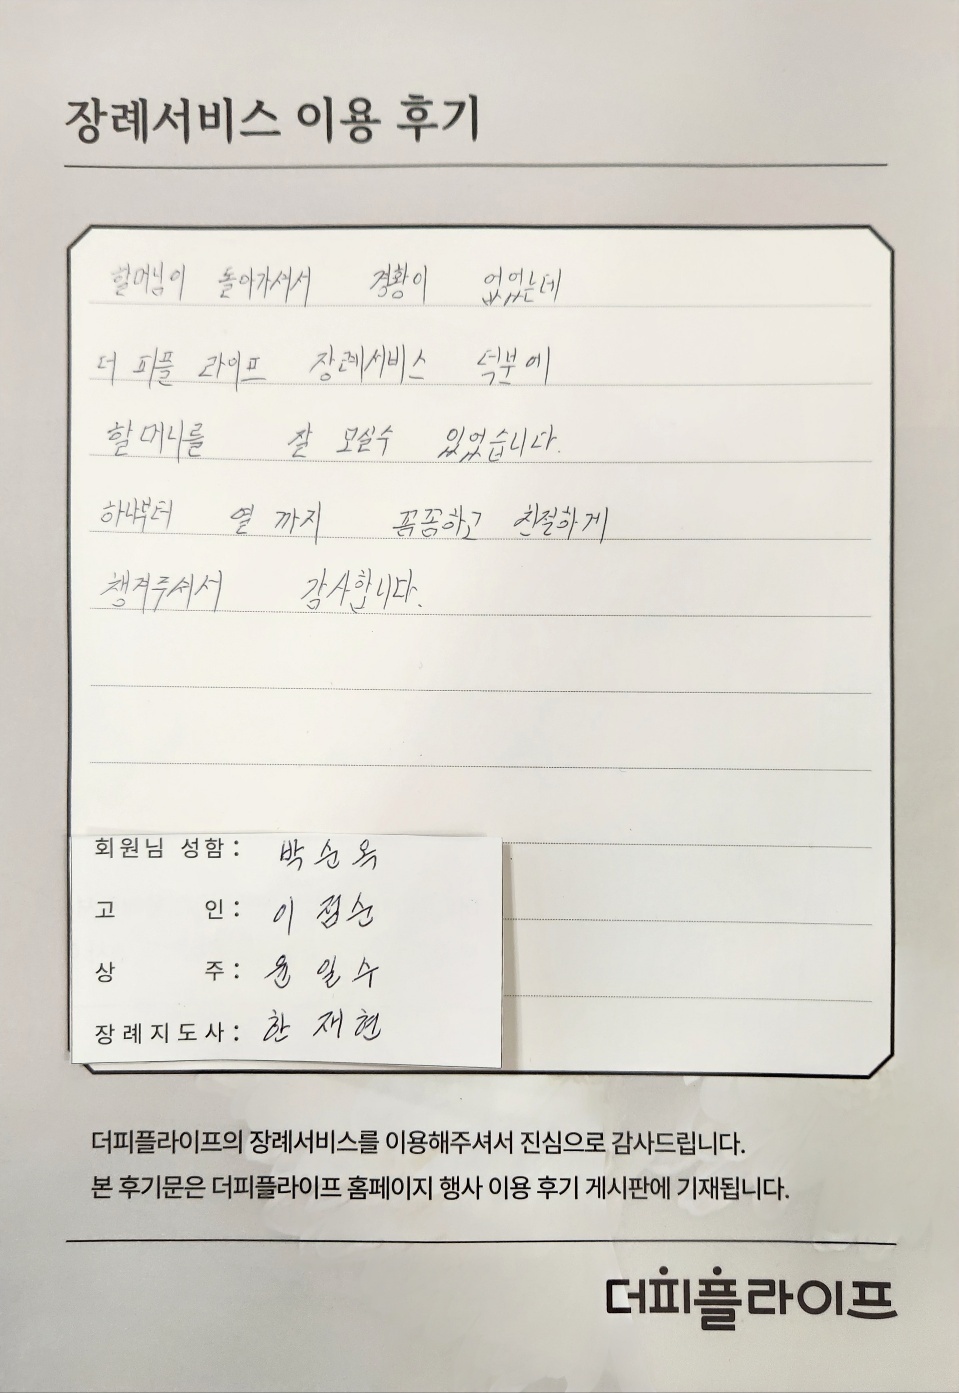 장례서비스 이용 후기
할머님이 돌아가셔서 경황이 없었는데
더 피플 라이프 장례서비스 덕분에
할머니를 잘 모실수 있었습니다.
하나부터 열 까지 꼼꼼하고 친절하게
챙겨주셔서 감사합니다.
회원님 성함 : 박순옥
고 인 : 이점순
상 주 : 윤일수
장례지도사 : 한재현
더피플라이프의 장례서비스를 이용해주셔서 진심으로 감사드립니다.
본 후기문은 더피플라이프 홈페이지 행사 이용 후기 게시판에 기재됩니다.
더피플라이프